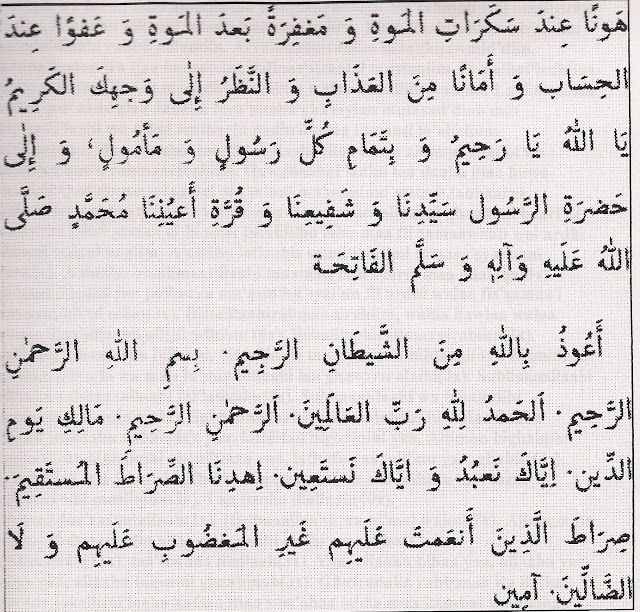 هَونًا عِندَ سَكَرَاتِ المَوةِ وَ مَغفِرَةً بَعدَ المَوةِ وَ عَفوًا عِندَ
الحِسَاب وَ أَمَانًا مِنَ العَذَابِ وَ النَّظَرُ إِلٰى وَجهِكَ الكَرِيمُ
يَا اللهُ يَا رَحِيمُ وَ بِتَمَامِ كُلِّ رَسُولٍ وَ مَأمُولٍ، وَ إِلٰى
حَضرَةِ الرَّسُول سَيِّدِنَا وَ شَفِيعِنَا وَ قُرَّةِ أَعيُنِنَا مُحَمَّدٍ صَلَّى
اللهُ عَلَيهِ وَآلِهِ وَ سَلَّم الفَاتِحَة
أَعُوذُ بِاللهِ مِنَ الشَّيطَانِ الرَّجِيمِ. بِسمِ اللهِ الرَّحمٰنِ
الرَّحِيمِ. اَلحَمدُ لِلهِ رَبِّ العَالَمِينَ. اَلرَّحمٰنِ الرَّحِيمِ. مَالِكِ يَومِ
الدِّين. اِيَّاكَ نَعبُدُ وَ اِيَّاكَ نَستَعِين. اِهدِنَا الصِّرَاطَ المُستَقِيمَ.
صِرَاطَ الَّذِينَ أَنعَمتَ عَلَيهِم غَيرِ المَغضُوبِ عَلَيهِم وَ لَا
الضَّالِّينَ. آمِين